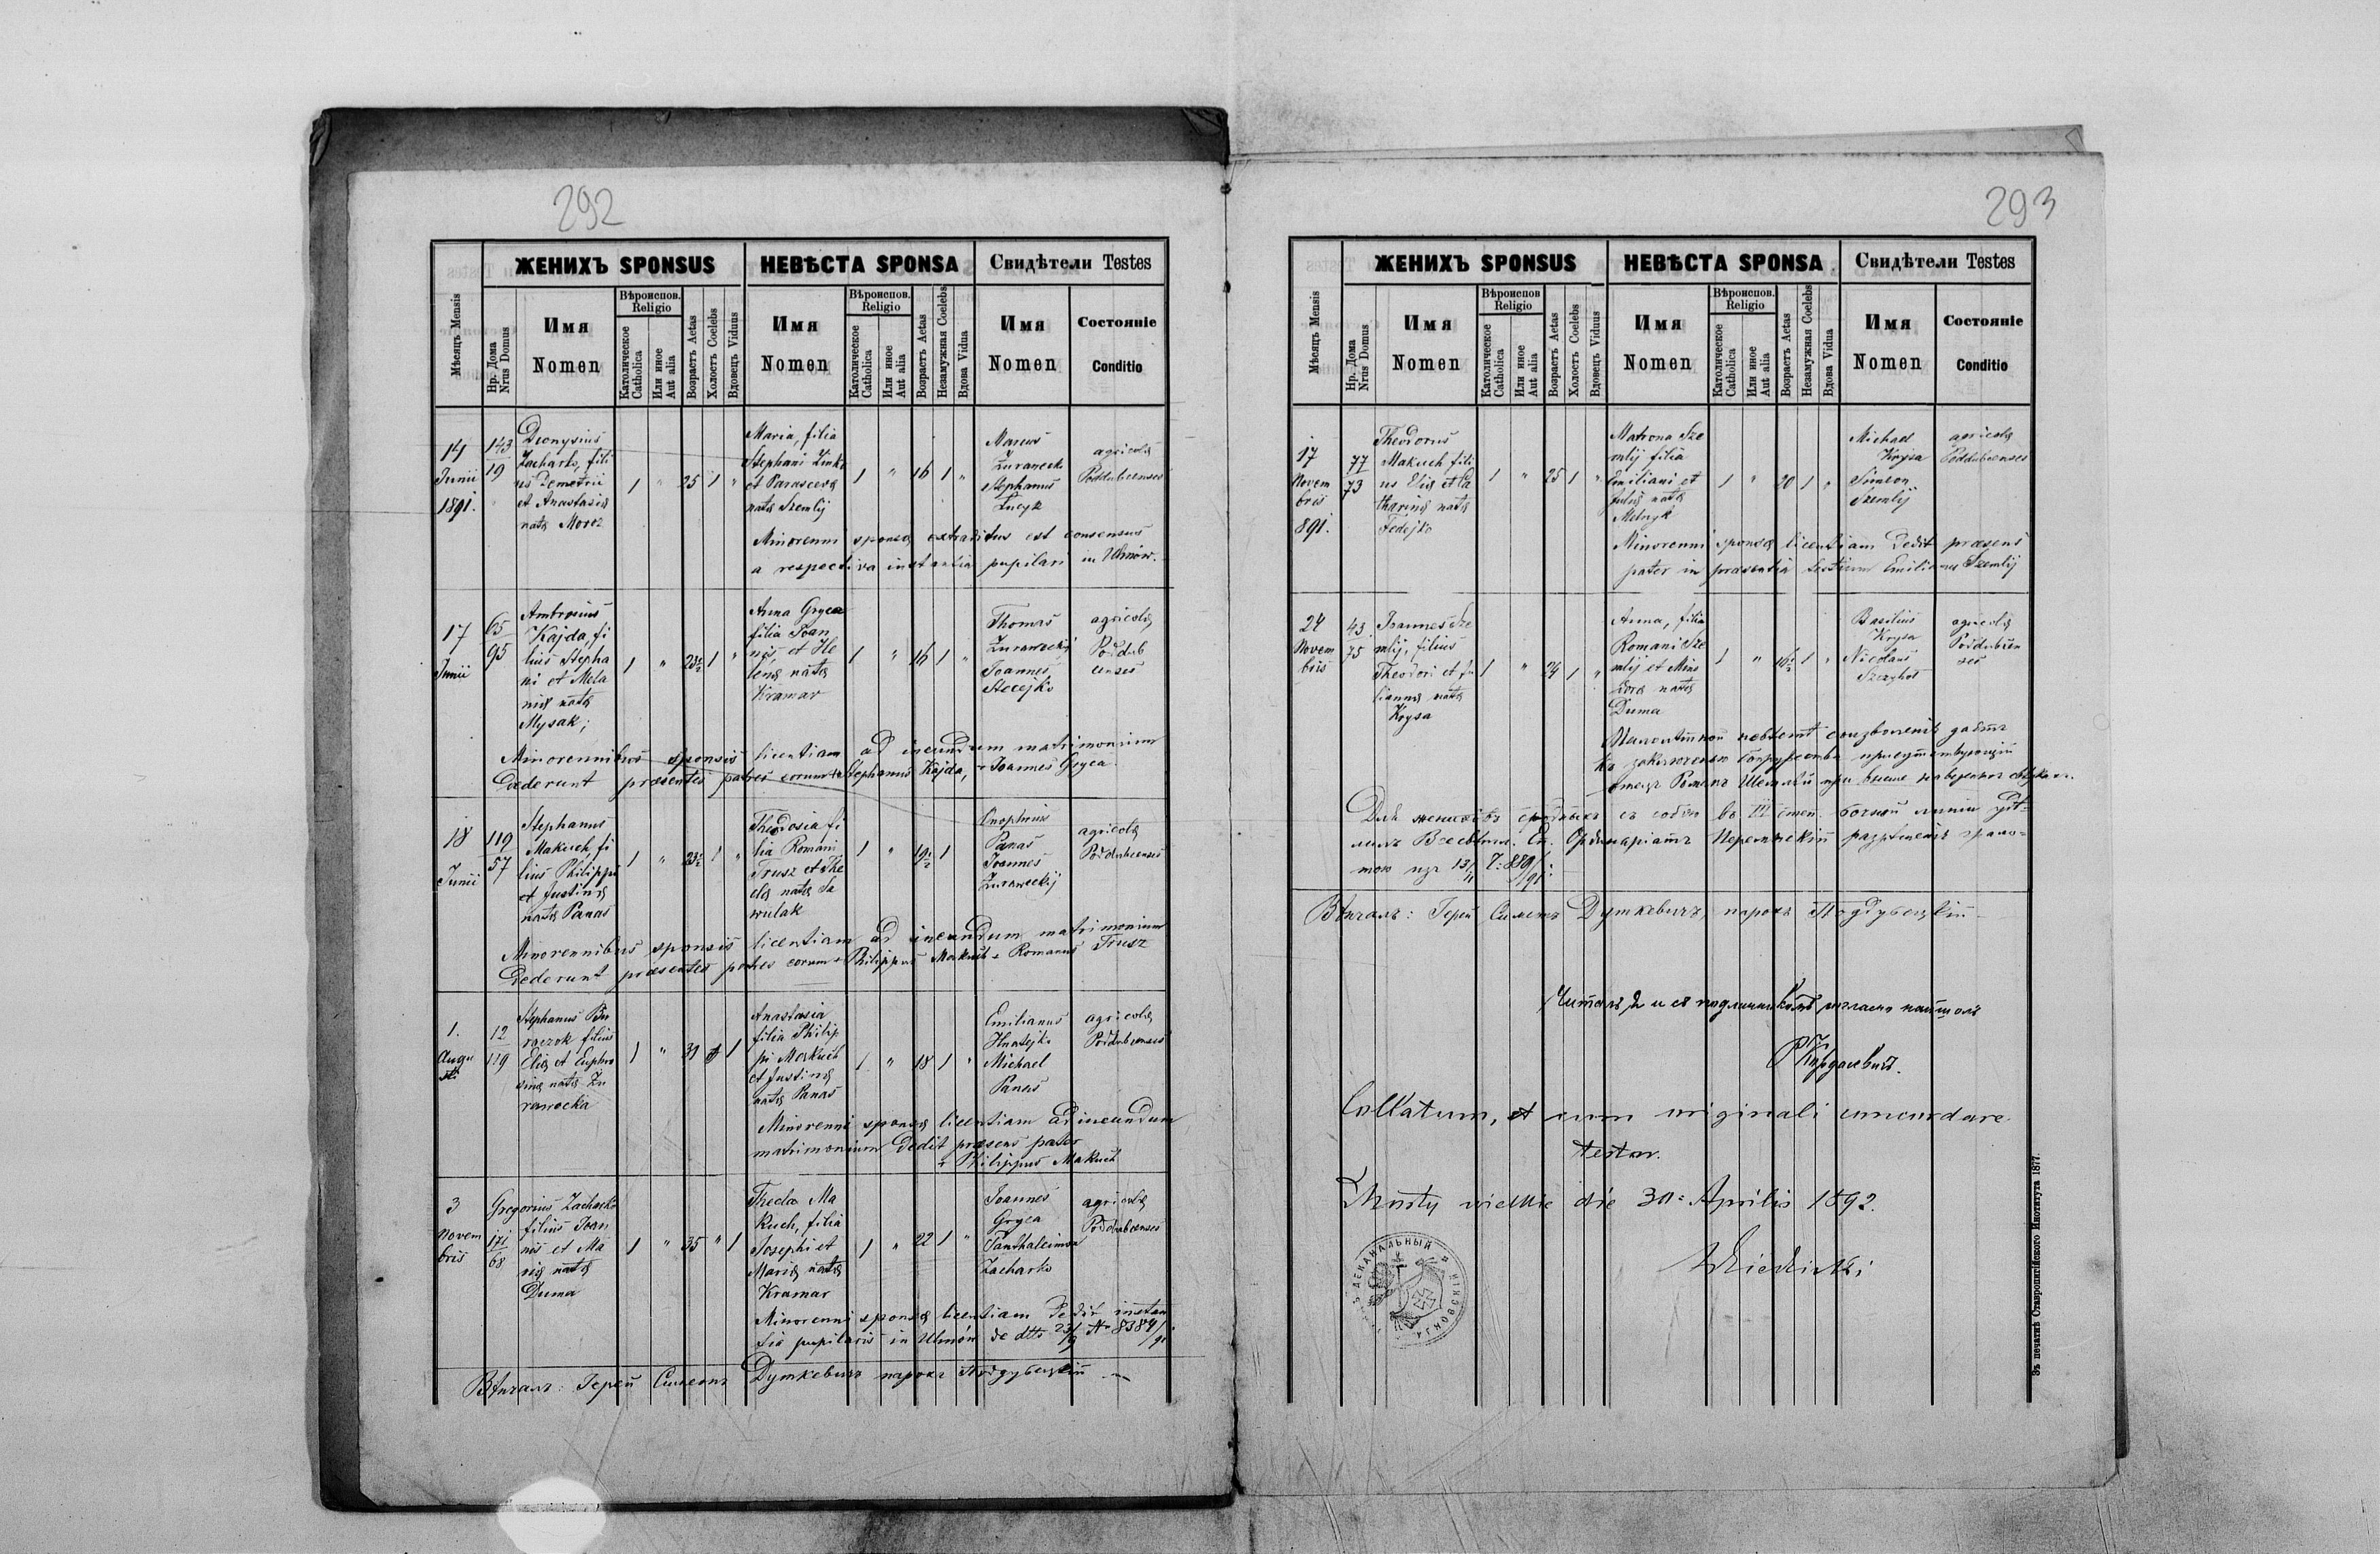 292
ЖЕНИХЪ SPONSUS
НЕВѢСТА SPONSA
Свидѣтели Testes
Мѣсяцъ Mensis
Нр. Дома
Nrus Domus
Имя
Nomen
Вѣроиспов.
Religio
Католическое
Catholica
Или иное
Aut alia
Возрастъ Aetas
Холостъ Coelebs
Вдовецъ Viduus
Имя
Nomen
Вѣроиспов.
Religio
Католическое
Catholica
Или иное
Aut alia
Возрастъ Aetas
Незамужная Coelebs
Вдова Vidua
Имя
Nomen
Состояніе
Conditio
14
Junii
1891.
143
19
Dionysius
Zacharko, fili
us Demetrii
et Anastasiæ
natæ Moroz
1 " 25 1 "
Maria, filia
Stephani
et Parascevæ
natæ Szemlij
1 " 16 1 "
Marcus
Stephanus
agricolæ
Poddubcenses
Minorenni sponsæ extraditus est consensus
a respectiva instantia pupilari in Uhnów.
17
Junii
65
95
Ambrosius
Kajda, fi
lius Stepha
ni et Mela
niæ natæ
Mysak;
1 " 23½ 1 "
Anna Gryca
filia Joan
nis et He
lenæ natæ
Kramar
1 " 16 1 "
Thomas
Żurawecki
Joannes
Stecejko
agricolæ
Poddub
censes
Minorennibus sponsis licentiam ad ineundum matrimonium
dederunt præsentes patres eorum + Stephanus Kajda, + Joannes Gryca
18
Junii
119
57
Stephanus
Makuch, fi
lius Philippi
et Justinæ
natæ Panas
1 " 23½ 1 "
Theodosia fi
lia Romani
Trusz et The
clæ natæ Sa
wulak
1 " 19½ 1
Onuphrius
Panas
Joannes
Żuraweckij
agricolæ
Poddubcenses
Minorennibus sponsis licentiam ad ineundum matrimonium
dederunt præsentes patres eorum + Philippus Makuch + Romanus Trusz
1.
Augu
sti
12
119
Stephanus Bu
raczok filius
Eliæ et Euphro
sinæ natæ Żu
rawecka
1 " 31 1
Anastasia
filia Philip
pi Makuch
et Justinæ
natæ Panas
1 " 18 1 "
Emilianus
Hnatejko
Michael
Panas
agricolæ
Poddubcenses
Minorenni sponsæ licentiam ad ineundum
matrimonium dedit præsens pater
+ Philippus Makuch
3
Novem
bris
171
68
Gregorius Zacharko
filius Joan
nis et Ma
riæ natæ
Duma
1 " 35 " 1
Thecla Ma
kuch, filia
Josephi et
Mariæ natæ
Kramar
1 " 22 1 "
Joannes
Gryca
Panthaleimon
Zacharko
agricolæ
Poddubcenses
Minorenni sponsæ licentiam dedit instan
tia pupilaris in Uhnów de dtto 23/9 № 8384/91
Вѣнчалъ: Іерей Симеонъ Дуткевичъ парохъ Поддубецкій
293
ЖЕНИХЪ SPONSUS
НЕВѢСТА SPONSA
Свидѣтели Testes
Мѣсяцъ Mensis
Нр. Дома
Nrus Domus
Имя
Nomen
Вѣроиспов
Religio
Католическое
Catholica
Или иное
Aut alia
Возрастъ Aetas
Холостъ Coelebs
Вдовецъ Viduus
Имя
Nomen
Вѣроиспов.
Religio
Католическое
Catholica
Или иное
Aut alia
Возрастъ Aetas
Незамужная Coelebs
Вдова Vidua
Имя
Nomen
Состояніе
Conditio
17
Novem
bris
891.
77
73
Theodorus
Makuch fili
us Eliæ et Ca
tharinæ natæ
Fedejko
1 " 25 1 "
Matrona Sze
mlij filia
Emiliani et
Juliæ natæ
Melnyk
1 " 20 1 "
Michael
Krysa
Simeon
Szemlij
agricolæ
Poddubcenses
Minorenni sponsæ licentiam dedit præsens
pater in præsentia testium Emilianus Szemlij
24
Novem
bris
43
75
Joannes Sze
mlij, filius
Theodori et Ju
liannæ natæ
Krysa
1 " 24 1 "
Anna, filia
Romani Sze
mlij et Mino
doræ natæ
Duma
1 " 16½ 1 "
Basilius
Krysa
Nicolaus
agricolæ
Poddubcen
ses
Малолѣтной невѣстѣ соизволеніе даетъ
къ заключенію супружества присутствующій
отецъ Романъ Шемлый при выше наведеныхъ свѣдкахъ.
съ собою въ III степ. бочной линіи
Ординаріатъ Перемыскій разрѣшенія грамо-
тою изъ 13/11 Ч: 889/91.
Вѣнчалъ: Іерей Симеонъ Дуткевичъ, парохъ Поддубецкій
Collatum, et cum originali concordare
testor.
die 30= Aprilis 1892.
Зъ печатнѣ Ставропигійского Института 1877.